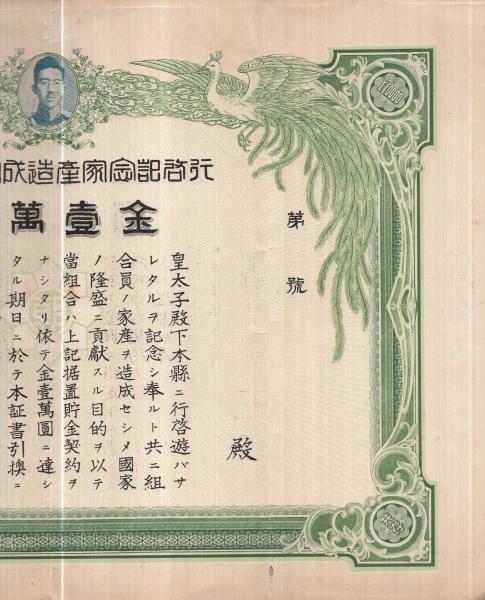 行啓記念家産造成
金壹萬
第 號
殿
皇太子殿下本縣ニ行啓遊バサ
レタルヲ記念シ奉ルト共ニ組
合員ノ家產ヲ造成セシメ國家
ノ隆盛ニ貢獻スル目的ヲ以テ
當組合ハ上記据置貯金契約ヲ
ナシタリ依テ金壹萬圓ニ達シ
タル期日ニ於テ本証書引換ニ
10000